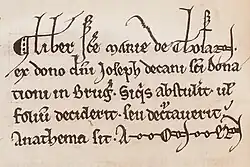 Liber sce marie de Thosan
ex dono dni Joseph decani sci dona
tiani in Brug. Siqs abstulit ul
folium deciderit. seu detruncauerit
Anathema sit. A